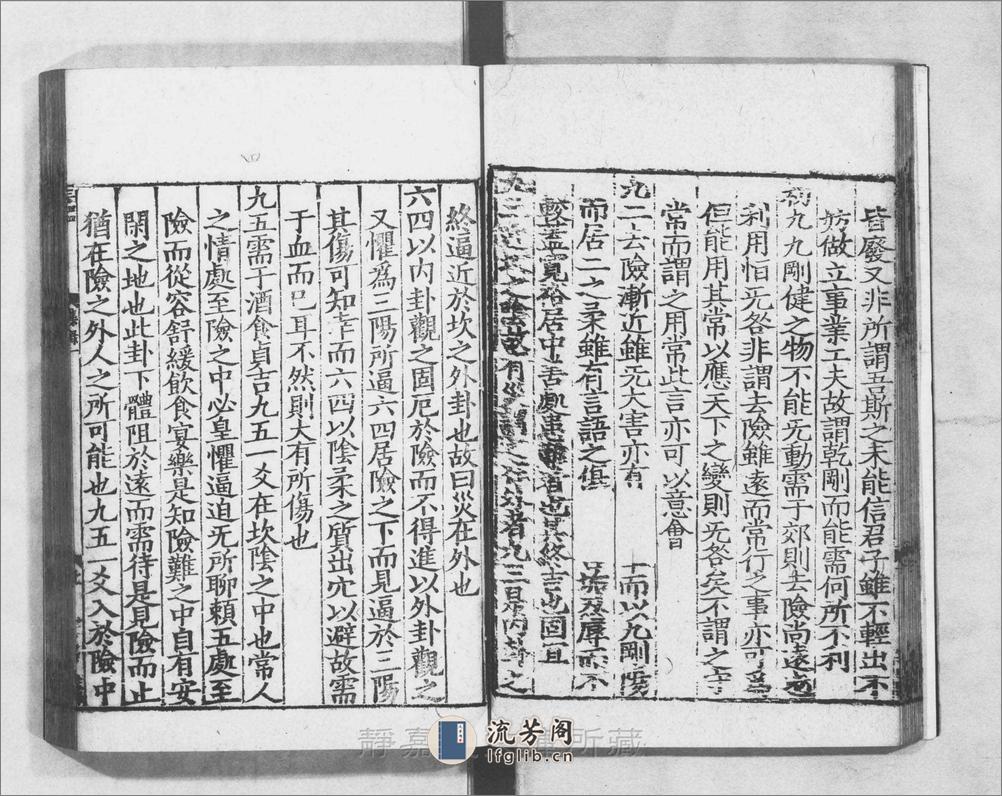 皆廢又非所謂吾斯之未能信君子雖不輕出不
妨做立事業工夫故謂乾剛而能需何所不利
初九九剛健之物不能无動需于郊則去險尚遠
利用恒无咎非謂去險雖遠而常行之事亦可
但能用其常以應天下之變則无咎矣不謂之
常而謂之用常此言亦可以意會
九二去險漸近雖无大害亦有 而以九剛陽
而居二之柔雖有言語之 不
寬裕居中善處患難者也其終吉也固宜
九三 之
終逼近於坎之外卦也故曰災在外也
六四以内卦觀之固厄於險而不得進以外卦觀之
又懼爲三陽所逼六四居險之下而見逼於三陽
其傷可知幸而六四以陰柔之質出穴以避故需
于血而已耳不然則大有所傷也
九五需于酒食貞吉九五一爻在坎陰之中也常人
之情處至險之中必皇懼逼迫无所聊頼五處至
險而從容舒緩飲食宴樂是知險難之中自有安
閑之地也此卦下體阻於遠而需待是見險而止
猶在險之外人之所可能也九五一爻入於險中
流芳阁
lfglib.cn
静嘉 所藏